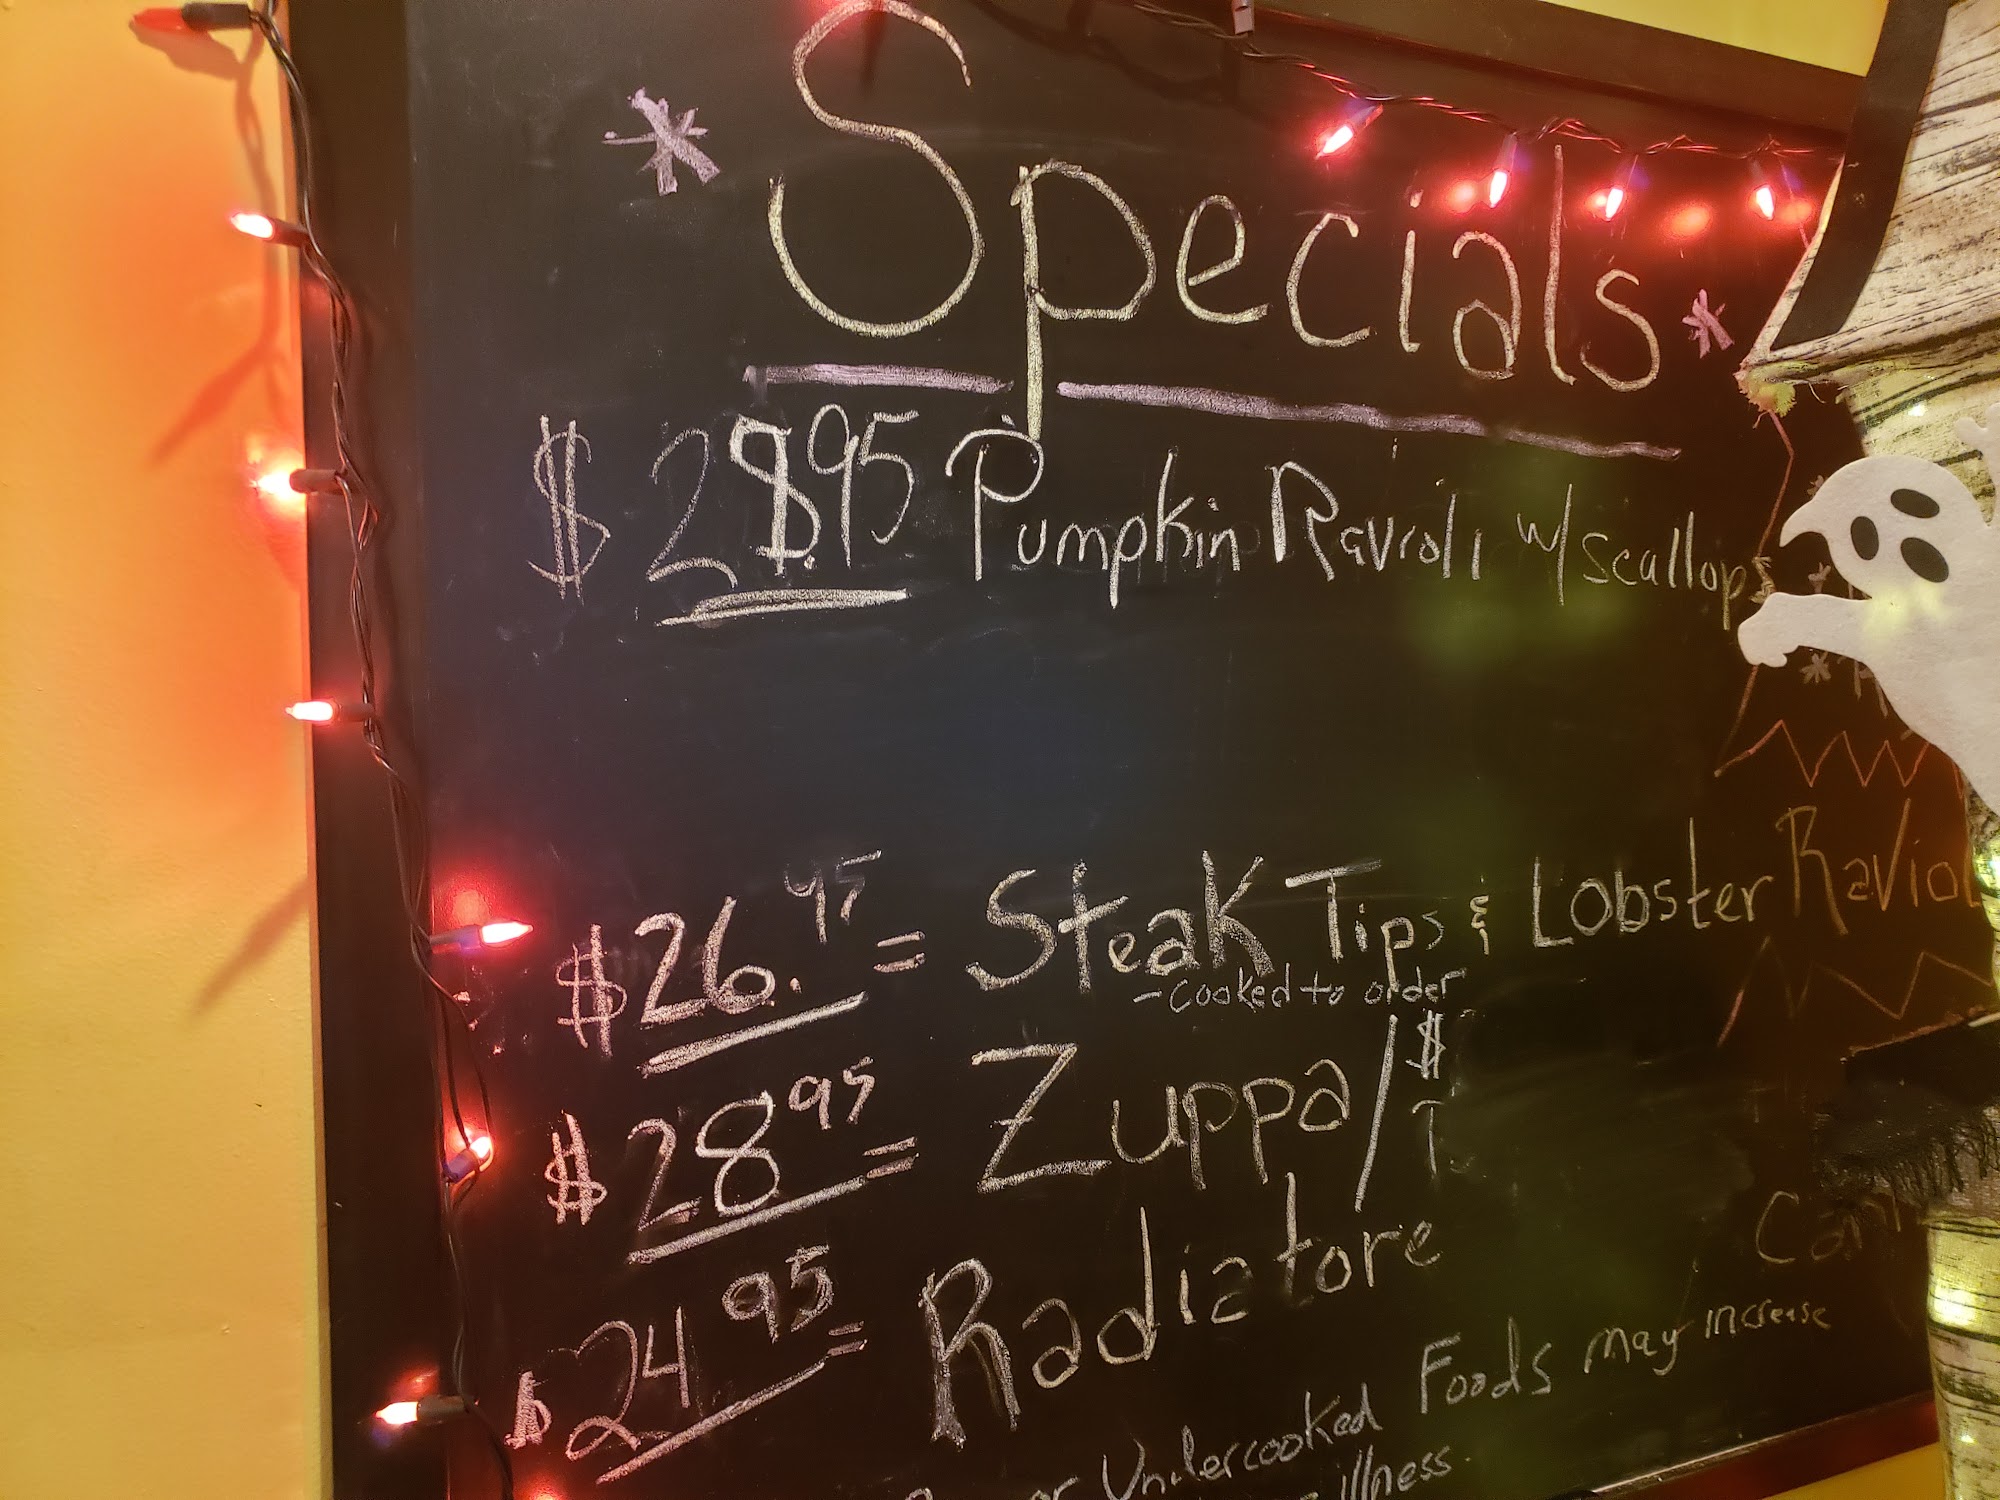 * Specials *
$28.95 Pumpkin Ravioli w/ scallops
$26.95 = Steak Tips & Lobster Ravio
- cooked to order
$28.95 = Zuppa/$
$24.95 = Radiatore
or Undercooked Foods may increase
illness.